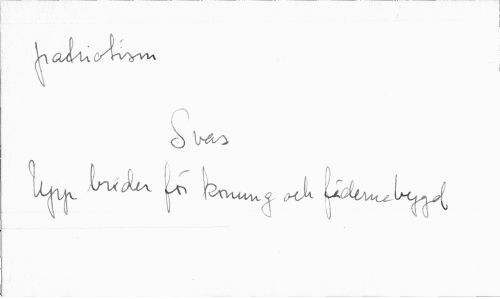 patriotism
Svas
Upp bröder för konung och fädernebygd